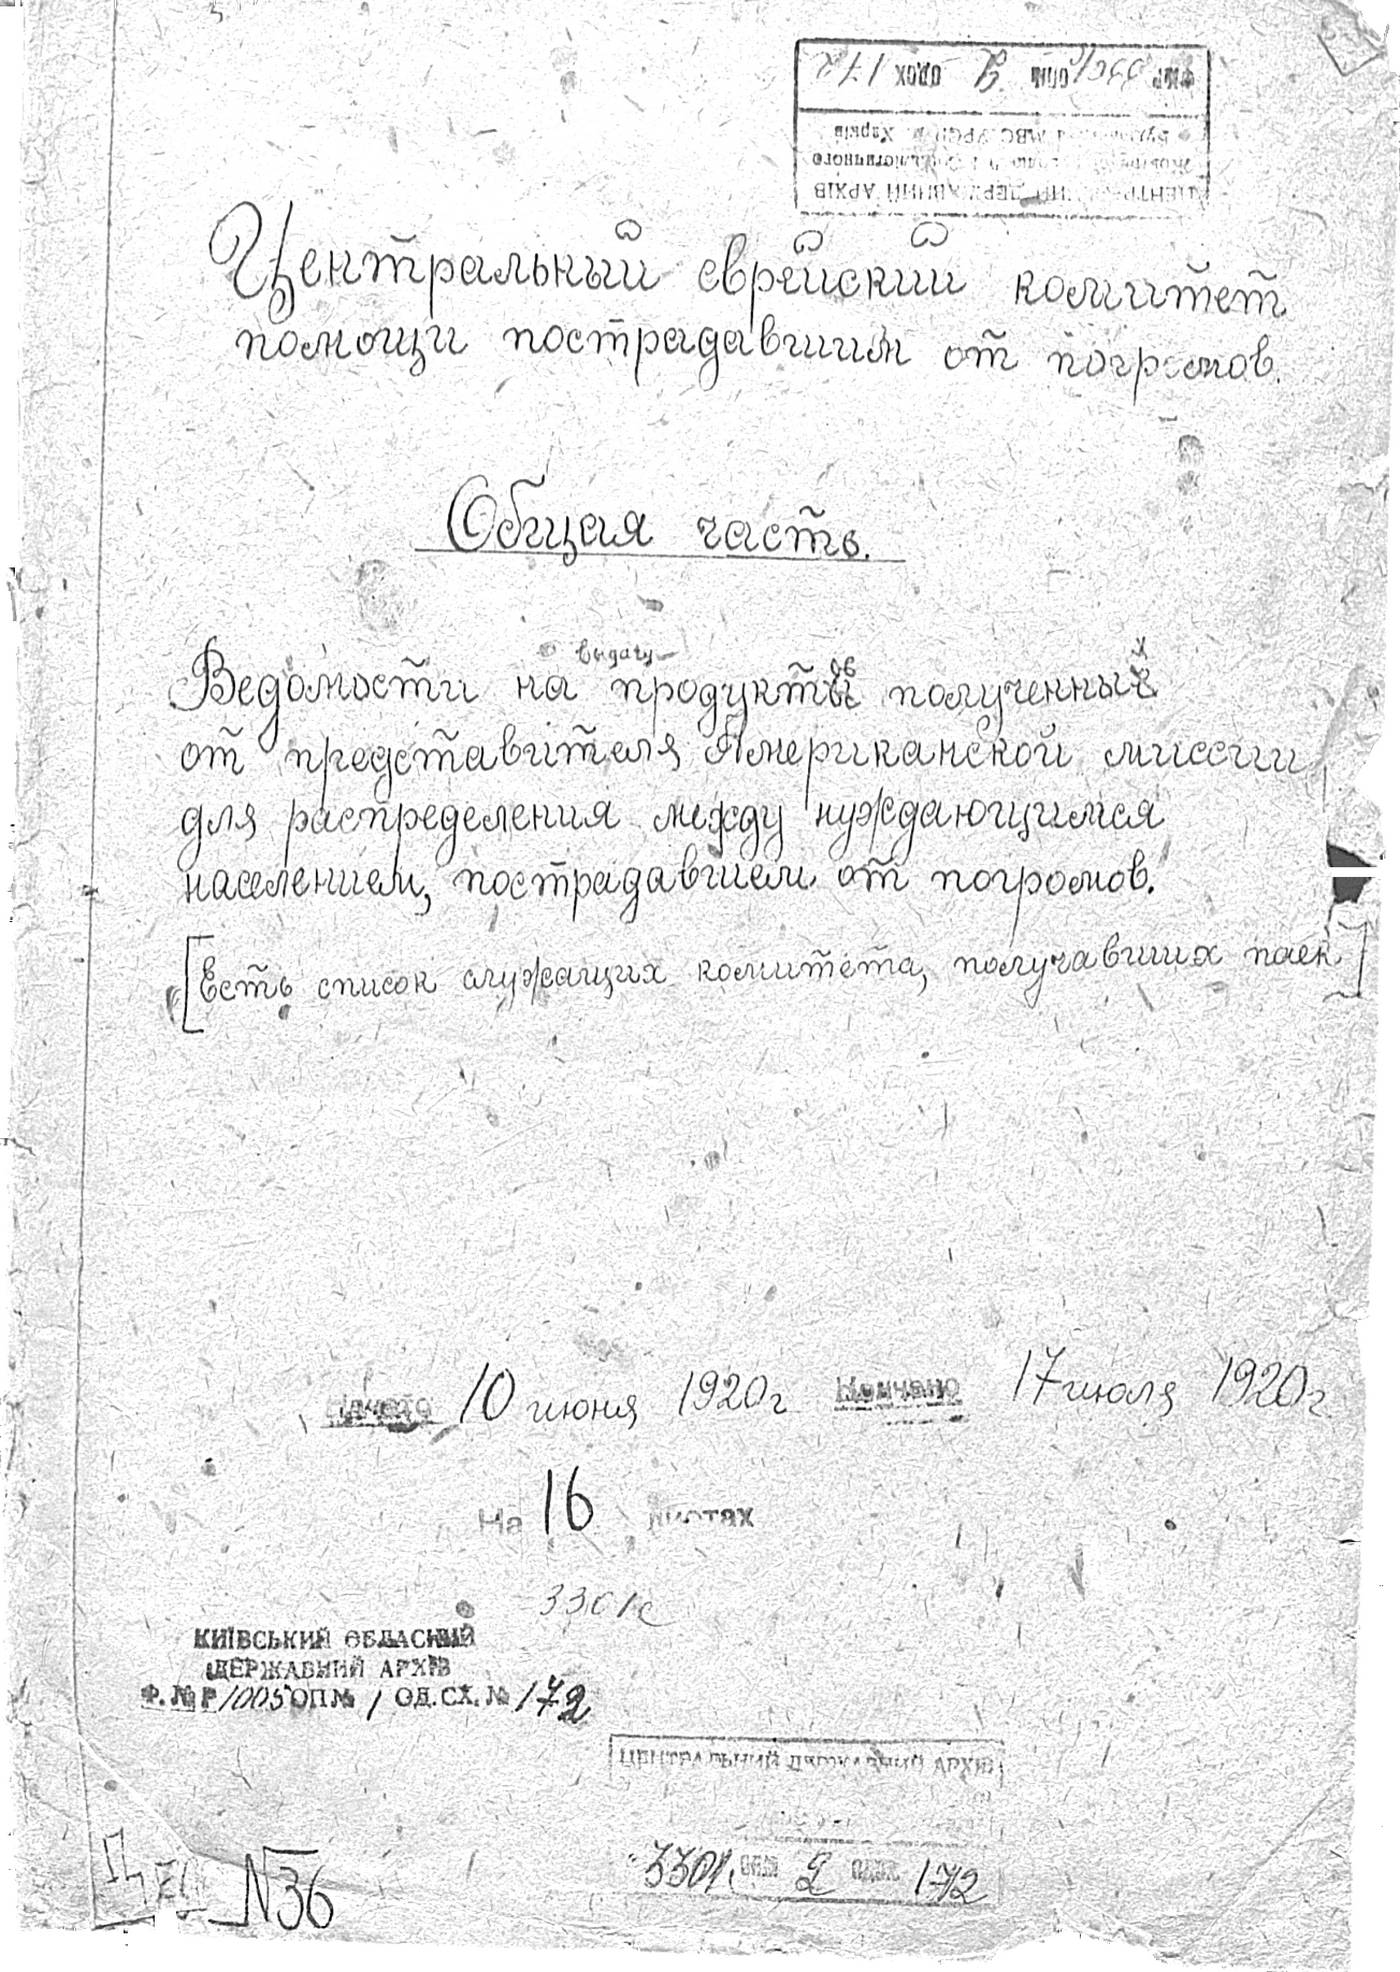 Центральный еврейский комитет
помощи пострадавшим от погромов.
Общая часть.
выдачу
Ведомости на продуктов полученных
от представителя Американской миссии
для распределения между нуждающимся
населением, пострадавшем от погромов.
[Есть список служащих комитета, получавших паек]
Начато 10 июня 1920 г Кончено 17 июля 1920 г
На 16 листах
3301с
КИЇВСЬКИЙ ОБЛАСНИЙ
ДЕРЖАВНИЙ АРХІВ
Ф. № Р 1005 ОП № 1 ОД. СХ. № 172
ЦЕНТРАЛЬНИЙ ДЕРЖАВНИЙ АРХІВ
3301с 2 172
N36
ЦЕНТРАЛЬНИЙ ДЕРЖАВНИЙ АРХІВ
Харків
ОПИ 2 ОДОХ 172